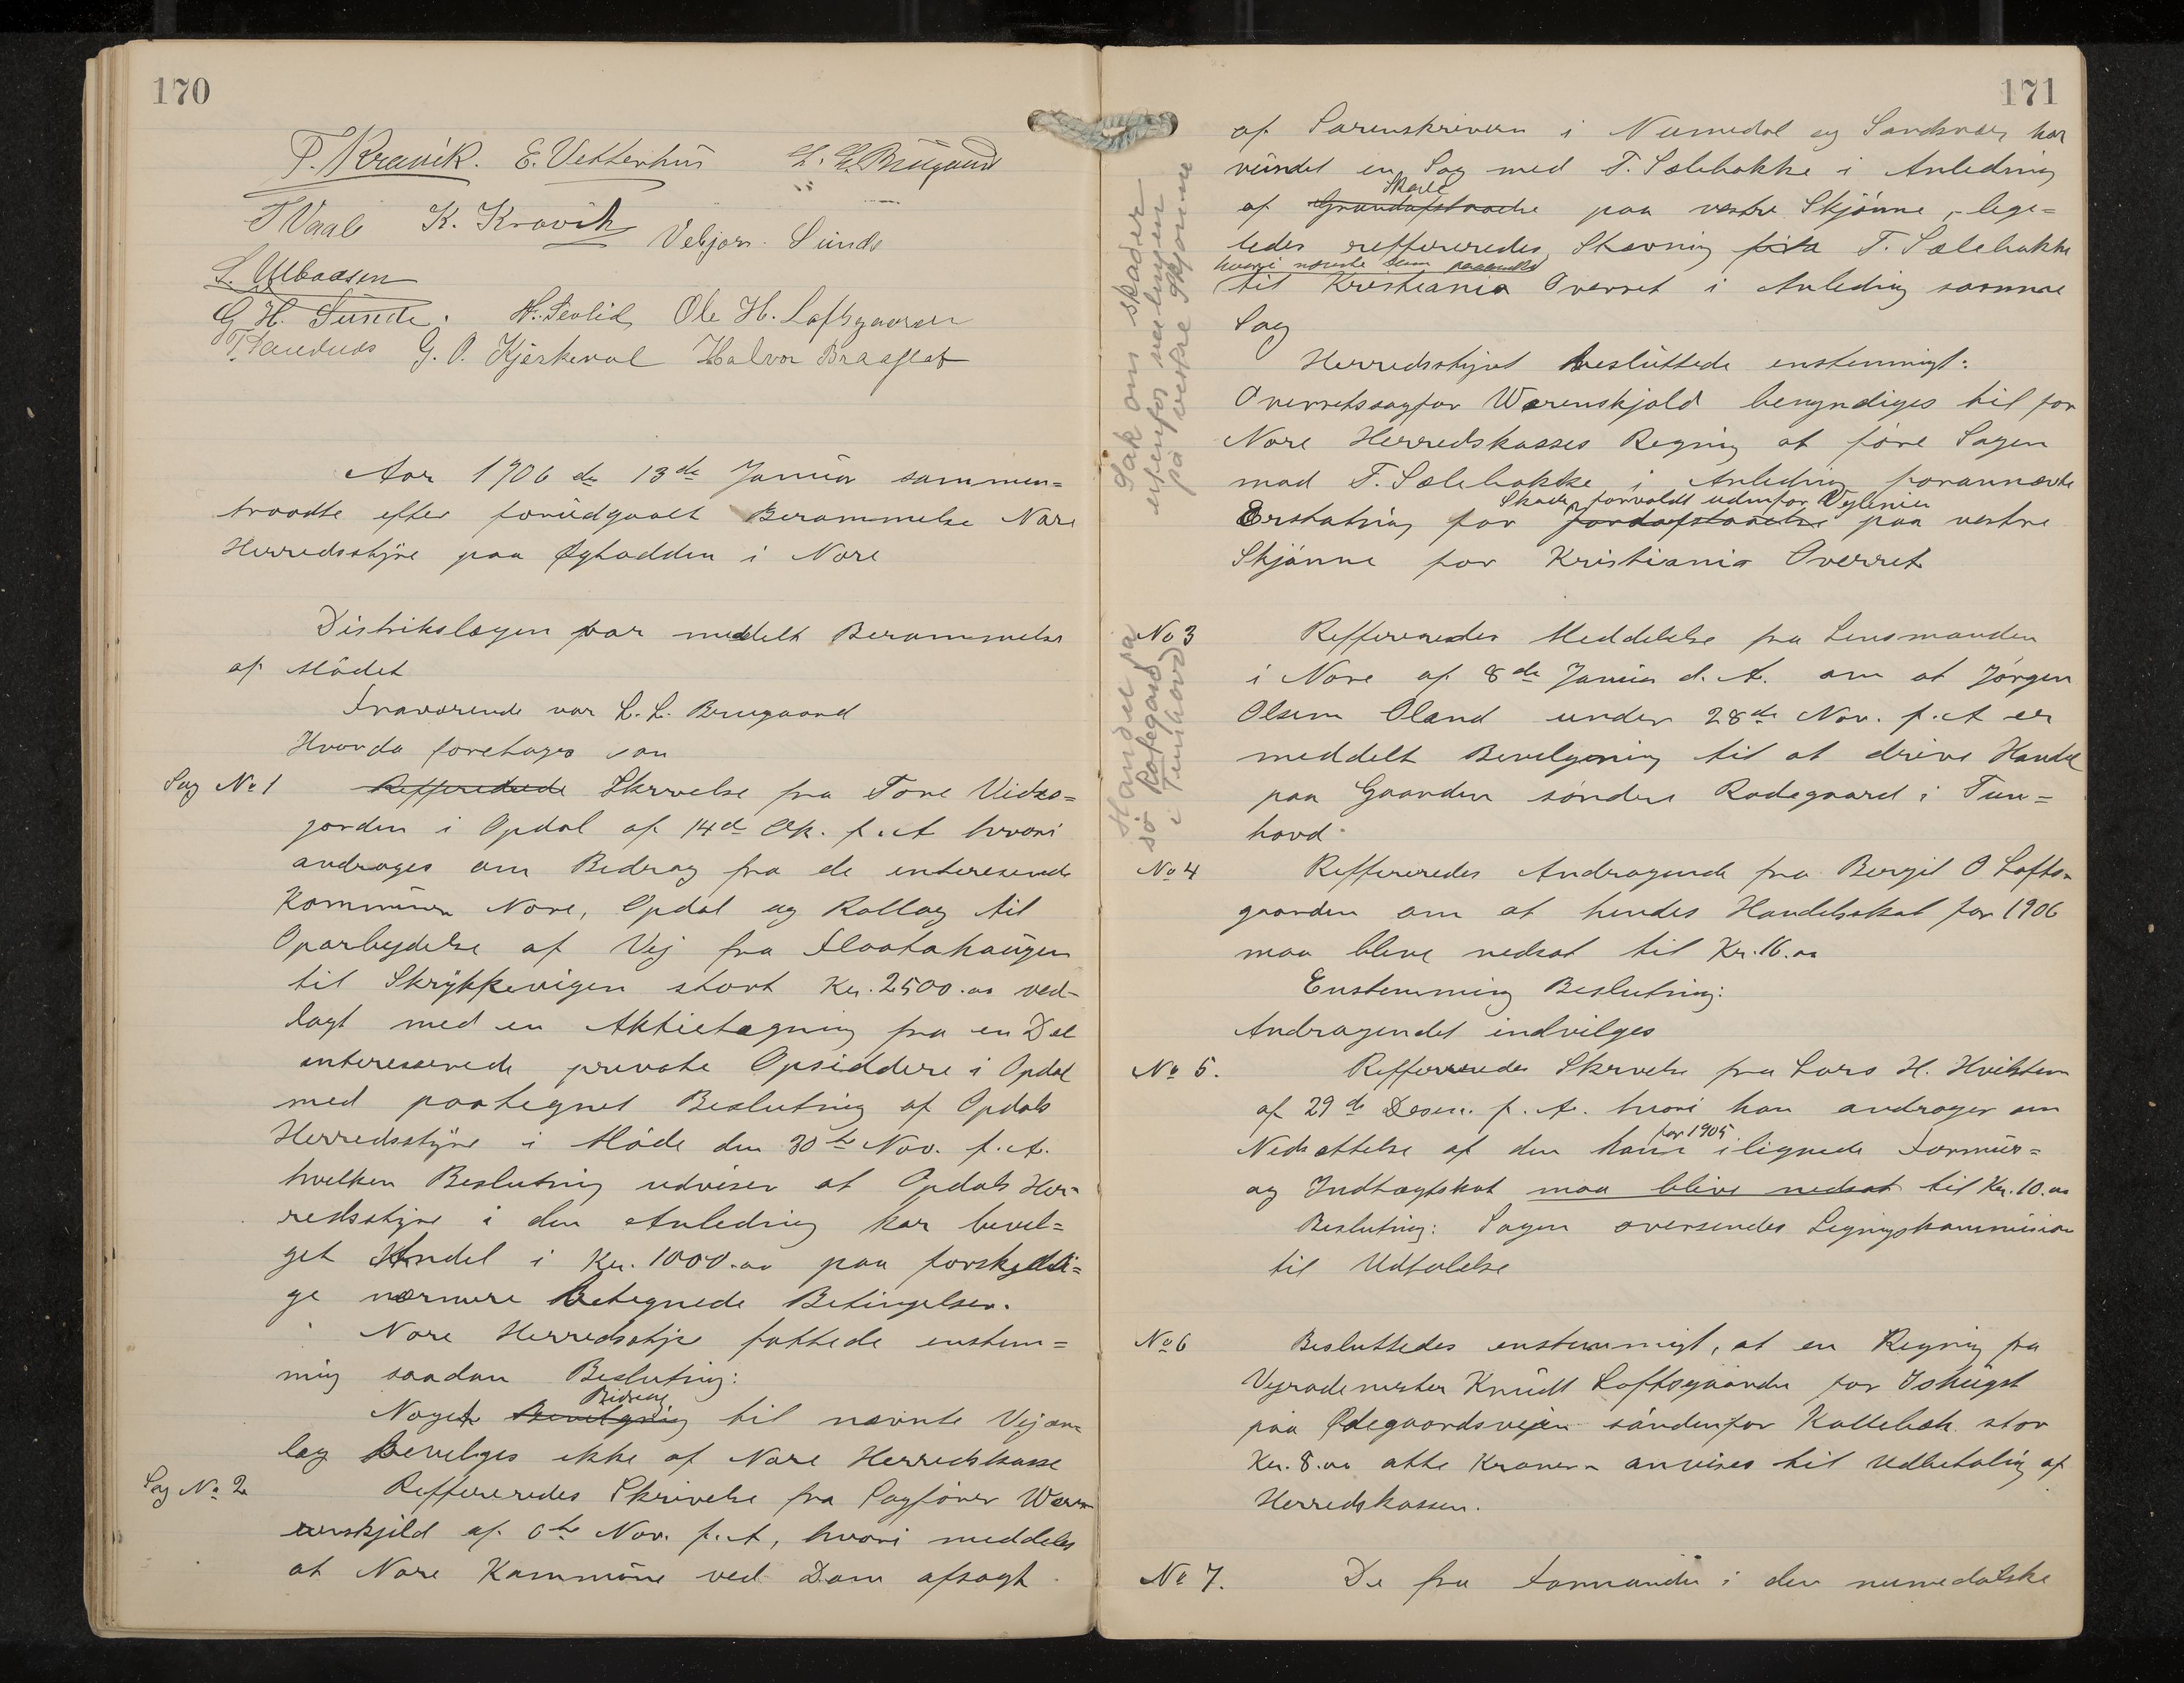 170
T. Kravik. E. Vetterhus L. L. Brugaard
T Vaale K. Kravik Vebjørn. Sunde
G. H. Sunde. N. Sevlid Ole H. Loftsgaarden
G. O. Kjerkeval Halvor Braaflat
Aar 1906 den 13de Januar sammen=
traadte efter forudgaaet Berammelse Nore
Herredsstyre paa Øgtadden i Nore
Distrikslægen var meddelt Berammelse
af Mødet
Fraværende var L. L. Brugaard
Hvorda foretoges saa
Sag No 1 Reffereredes Skrivelse fra Tore Vidsø=
jorden i Opdal af 14de Ok. f. A hvori
androges om Bidrag fra de interesserede
Kommuner Nore, Opdal og Rollag til
Oparbydelse af Vej fra Flaatahaugen
til Skrykkevigen stort Kr. 2500.00 ved-
lagt med en Aktietegning fra en Del
interesserede private Opsiddere i Opdal
med paategnet Beslutning af Opdals
Herredsstyre i Møde den 30te Nov. f. A.
hvilken Beslutning udviser at Opdals Her-
redsstyre i den Anledning har bevil=
get Andel i Kr. 1000.00 paa forskjelli=
ge nærmere betegnede Betingelser.
Nore Herredsstyre fattede enstem=
mig saadan Beslutning:
Bidrag
Noget Bevilgning til nævnte Vejan=
læg bevilges ikke af Nore Herredskasse
Sag No 2 Reffereredes Skrivelse fra Sagfører Waren
renskjold af 6te Nov. f. A, hvori meddeles
at Nore Kommune ved Dom afsagt
171
af Sorenskriveren i Numedal og Sandsvær har
vundet en Sag med T. Sælebakke i Anledning
Skade
af Grundafstaaelse paa vestre Skjønne, lige=
ledes reffereredes Stævning fra T. Sælebakke
hvori nævnte Dom paaankes
til Kristiania Overret i Anledning samme
Sag
Herredsstyret besluttede enstemmigt:
Overretssagfør Warenskjold bemyndiges til for
Nore Herredskasses Regning at føre Sagen
mod T. Sælebakke i Anledning forannævnte
Skade forvoldt udenfor Vejlinien
Erstatning for Jordafstaaelse paa vestre
Skjønne for Kristiania Overret
Sak om skader
utenfor veilinjen
på vestre Skjønne
No 3 Reffereredes Meddelelse fra Lensmanden
i Nore af 8de Januar d. A. om at Jørgen
Olsen Øland under 28de Nov. f. A er
meddelt Bevilgning til at drive Handel
paa Gaarden søndre Rodegaard i Tun=
hovd
Handel på
sø Rodegaard
i Tunhovd
No 4 Reffereredes Andragende fra Bergit O Lofts-
gaarden om at hendes Handelsskat for 1906
maa blive nedsat til Kr. 16.00
Enstemmig Beslutning:
Andragendet indvilges
No 5. Reffereredes Skrivelse fra Lars H. Hvilsten
af 29de Desem. f. A. hvori han androger om
for 1905
Nedsættelse af den ham ilignede Formues=
og Indtægtskat maa blive nedsat til Kr. 10.00
Beslutning: Sagen oversendes Ligningskommision
til Udtalelse
No 6 Besluttedes enstemmigt, at en Regning fra
Vejrodemester Knudt Loftsgaarden for Ishugst
paa Ødegaardsvejen søndenfor Kallebæk stor
Kr. 8.00 otte Kroner anvises til Udbetaling af
Herredskassen.
No 7. De fra Formanden i den numedalske